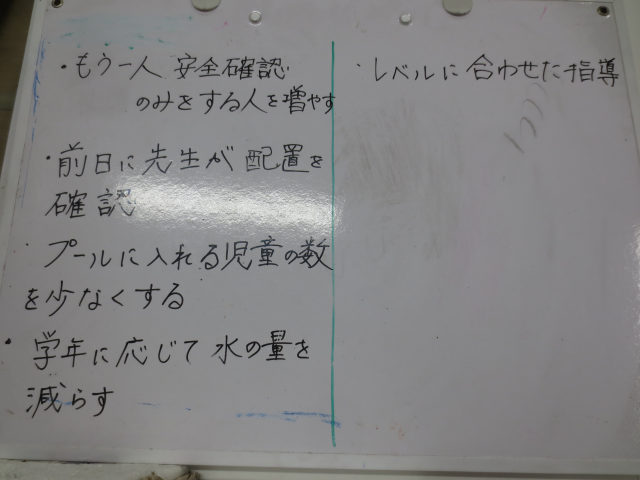 ・もう一人 安全確認
のみをする人を増やす
・前日に先生が配置を
確認
・プールに入れる児童の数
を少なくする
・学年に応じて水の量を
減らす
・レベルに合わせた指導